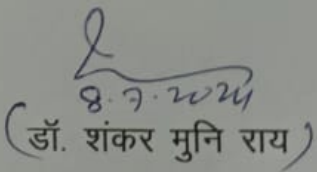 8.7.2024
(डॉ. शंकर मुनि राय)